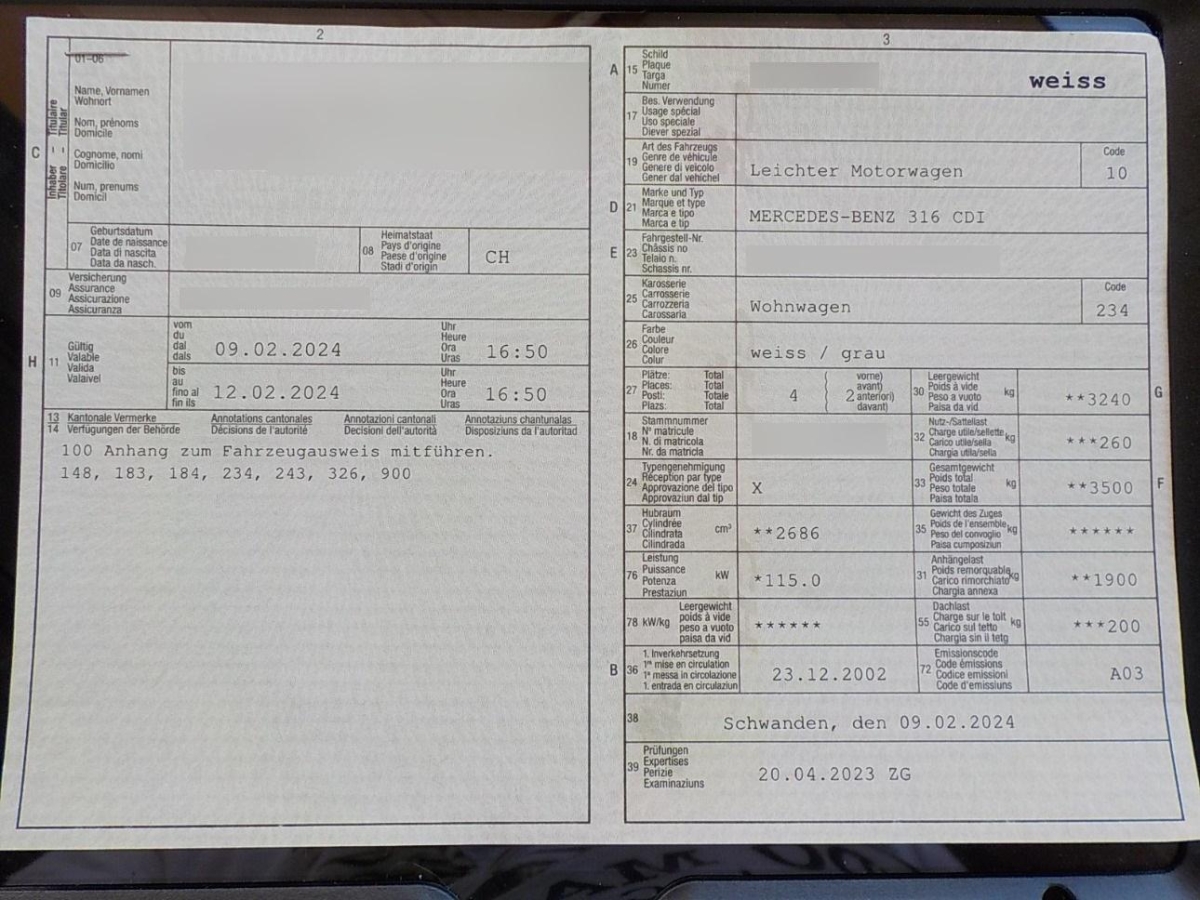 2
01-06
Name, Vornamen
Wohnort
Nom, prénoms
Domicile
Cognome, nomi
Domicilio
Num, prenums
Domicil
C
Inhaber – Titulaire
Titolare – Titular
07
Geburtsdatum
Date de naissance
Data di nascita
Data da nasch.
08
Heimatstaat
Pays d'origine
Paese d'origine
Stadi d'origin
CH
09
Versicherung
Assurance
Assicurazione
Assicuranza
H
11
Gültig
Valable
Valida
Valaivel
vom
du
dal
dals
09.02.2024
Uhr
Heure
Ora
Uras
16:50
bis
au
fino al
fin ils
12.02.2024
Uhr
Heure
Ora
Uras
16:50
13 Kantonale Vermerke Annotations cantonales Annotazioni cantonali Annotaziuns chantunalas
14 Verfügungen der Behörde Décisions de l'autorité Decisioni dell'autorità Disposiziuns da l'autoritad
100 Anhang zum Fahrzeugausweis mitführen.
148, 183, 184, 234, 243, 326, 900
3
A
15
Schild
Plaque
Targa
Numer
weiss
17
Bes. Verwendung
Usage spécial
Uso speciale
Diever spezial
19
Art des Fahrzeugs
Genre de véhicule
Genere di veicolo
Gener dal vehichel
Leichter Motorwagen
Code
10
D
21
Marke und Typ
Marque et type
Marca e tipo
Marca e tip
MERCEDES-BENZ 316 CDI
E
23
Fahrgestell-Nr.
Châssis no
Telaio n.
Schassis nr.
25
Karosserie
Carrosserie
Carrozzeria
Carossaria
Wohnwagen
Code
234
26
Farbe
Couleur
Colore
Colur
weiss / grau
27
Plätze: Total
Places: Total
Posti: Totale
Plazs: Total
4
2
vorne)
avant)
anteriori)
davant)
30
Leergewicht
Poids à vide
Peso a vuoto
Paisa da vid
kg
**3240
G
18
Stammnummer
N° matricule
N. di matricola
Nr. da matricla
32
Nutz-/Sattellast
Charge utile/sellette
Carico utile/sella
Chargia utila/sella
kg
***260
24
Typengenehmigung
Réception par type
Approvazione del tipo
Approvaziun dal tip
X
33
Gesamtgewicht
Poids total
Peso totale
Paisa totala
kg
**3500
F
37
Hubraum
Cylindrée
Cilindrata
Cilindrada
cm³
**2686
35
Gewicht des Zuges
Poids de l'ensemble
Peso del convoglio
Paisa cumposiziun
kg
******
76
Leistung
Puissance
Potenza
Prestaziun
kW
*115.0
31
Anhängelast
Poids remorquable
Carico rimorchiato
Chargia annexa
kg
**1900
78 kW/kg
Leergewicht
poids à vide
peso a vuoto
paisa da vid
******
55
Dachlast
Charge sur le toit
Carico sul tetto
Chargia sin il tetg
kg
***200
B
36
1. Inverkehrsetzung
1re mise en circulation
1a messa in circolazione
1. entrada en circulaziun
23.12.2002
72
Emissionscode
Code émissions
Codice emissioni
Code d'emissiuns
A03
38
Schwanden, den 09.02.2024
39
Prüfungen
Expertises
Perizie
Examinaziuns
20.04.2023 ZG